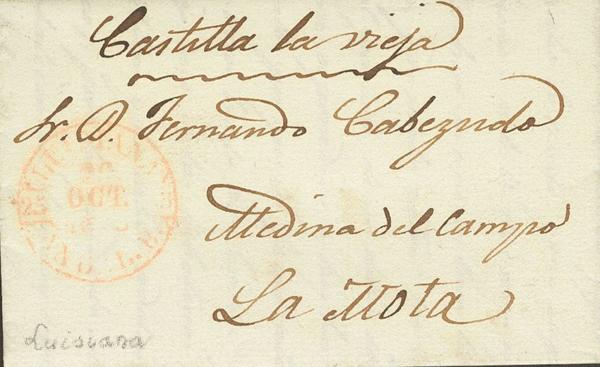 Castilla la vieja
Sr. D. Fernando Cabezudo
Medina del Campo
La Mota
OCT.
Luisiana